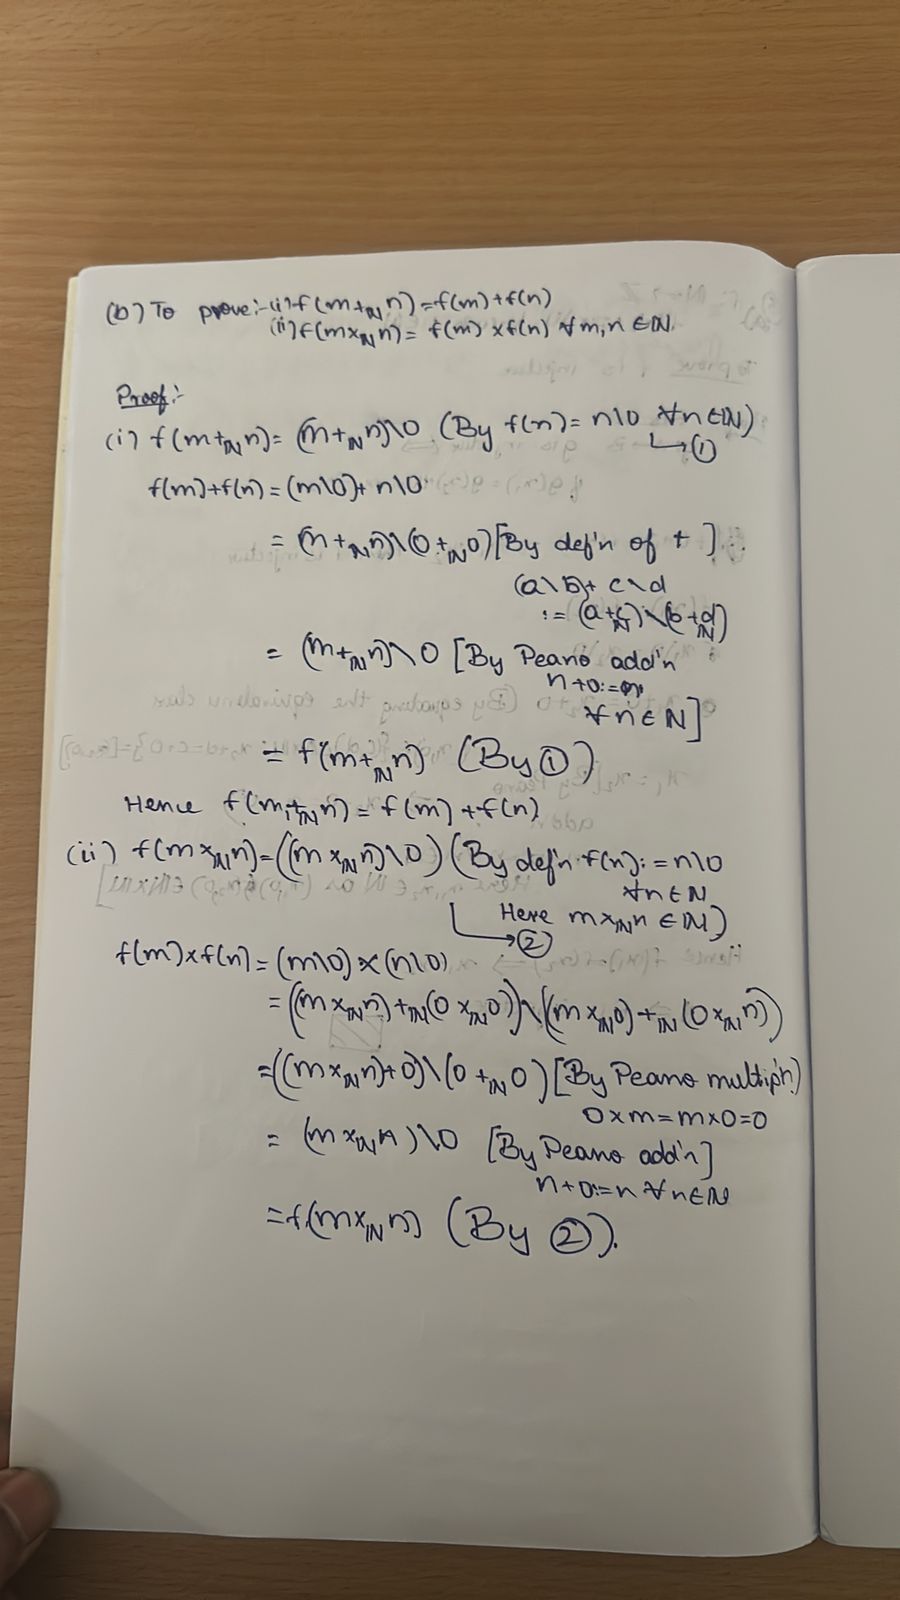 (b) To prove:- (i) f(m+ℕ n) = f(m) + f(n)
(ii) f(m×ℕ n) = f(m) × f(n) ∀ m, n ∈ ℕ.
Proof:-
(i) f(m+ℕ n) = (m+ℕ n)\0 (By f(n) = n\0 ∀ n ∈ ℕ)
↳ ①
f(m)+f(n) = (m\0) + n\0
= (m+ℕ n)\(0+ℕ 0) [By def'n of +]
(a\b)+ c\d
:= (a+ℕ c)\(b+ℕ d)
= (m+ℕ n)\0 [By Peano add'n
n+0:=n
∀ n ∈ ℕ]
= f(m+ℕ n) (By ①)
Hence f(m+ℕ n) = f(m) + f(n)
(ii) f(m×ℕ n) = ((m×ℕ n)\0) (By def'n f(n) := n\0
∀ n ∈ ℕ
Here m×ℕ n ∈ ℕ)
↳ ②
f(m)×f(n) = (m\0) × (n\0)
= ((m×ℕ n) +ℕ (0×ℕ 0))\((m×ℕ 0) +ℕ (0×ℕ n))
= ((m×ℕ n)+0)\(0+ℕ 0) [By Peano multip'n)
0×m = m×0 = 0
= (m×ℕ n)\0 [By Peano add'n]
n+0:=n ∀ n ∈ ℕ
= f(m×ℕ n) (By ②).